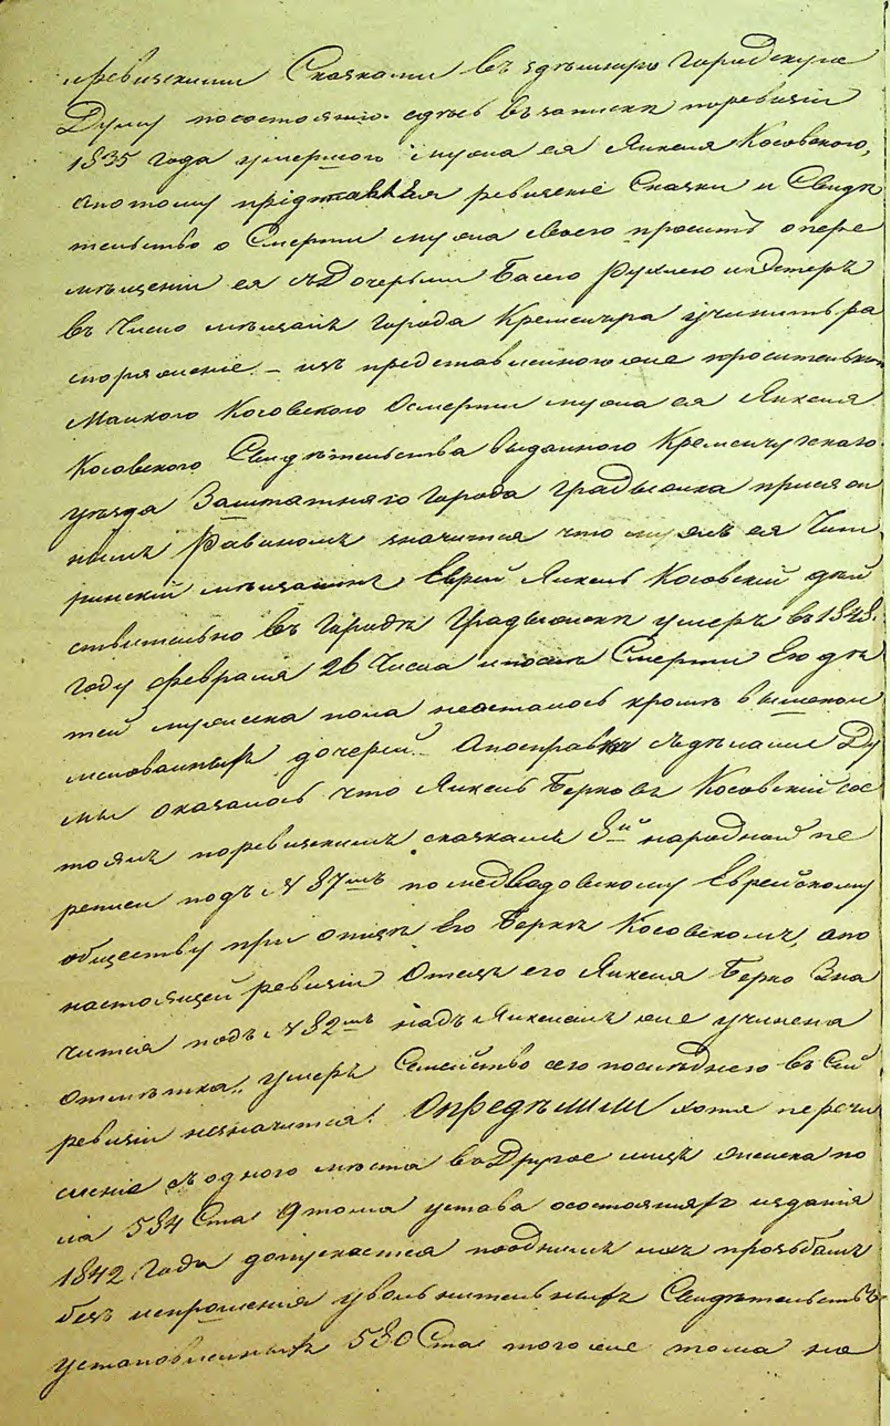 ревизскими Сказками въ здѣшнюю Городскую
Думу посостоянію здѣсь взаписки поревизіи
1835 года умершого мужа ея Янкеля Косовского,
апотому представляя ревизскіе Сказки и Свидѣ
тельство о Смерти мужа своего проситъ опере
мѣщеніи ея съ Дочерьми Басею Рухлею и Эстеръ
въ Число мѣщанъ города Кременчуга учинить ра
споряженіе. – изъ представленного же просительни
Малкою Косовского Осмерти мужа ея Янкеля
Косовского Свидѣтельства выданного Кременчугскаго
уѣзда Заштатнаго города Градыжска присяж
нымъ Равиномъ значится что мужъ ея Чиги
ринскій мѣщанинъ Еврей Янкель Косовскій дѣй
ствительно въ Городѣ Градыжскѣ умеръ въ 1848.
году февраля 26 Числа ипослѣ Смерти Его дѣ
тей мужеска пола неосталось кромѣ вышепои
менованныхъ дочерей. – Апосправкѣ съдѣлами Ду
мы оказалось что Янкель Берковъ Косовскій сос
тоялъ поревизскимъ сказкамъ 8й народной пе
реписи подъ № 87мъ по медведовскому Еврейскому
обществу при отцѣ Его Беркѣ Косовскомъ, апо
настоящей ревизіи Отецъ его Янкеля Берко Зна
чится подъ № 82мъ надъ Янкелемъ же учинена
отмѣтка „умеръ Семейство его послѣднего въ Сей
ревизіи незначится. ОпредѢлили хотя перечи
сленіе съ одного мѣста въ Другое лицъ женска по
ла 584 Ста 9 тома устава осостояніяхъ изданія
1842 Года допускается поодним ихъ прозьбамъ
безъ испрошенія увольнительныхъ Свидѣтельствъ
установленныхъ 580 Ста того же тома на